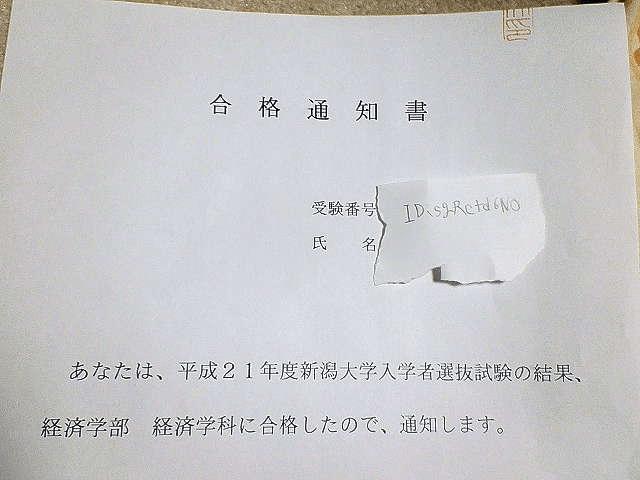 合格通知書
受験番号 IDisgRctd6NO
氏　名
あなたは、平成２１年度新潟大学入学者選抜試験の結果、
経済学部　経済学科に合格したので、通知します。